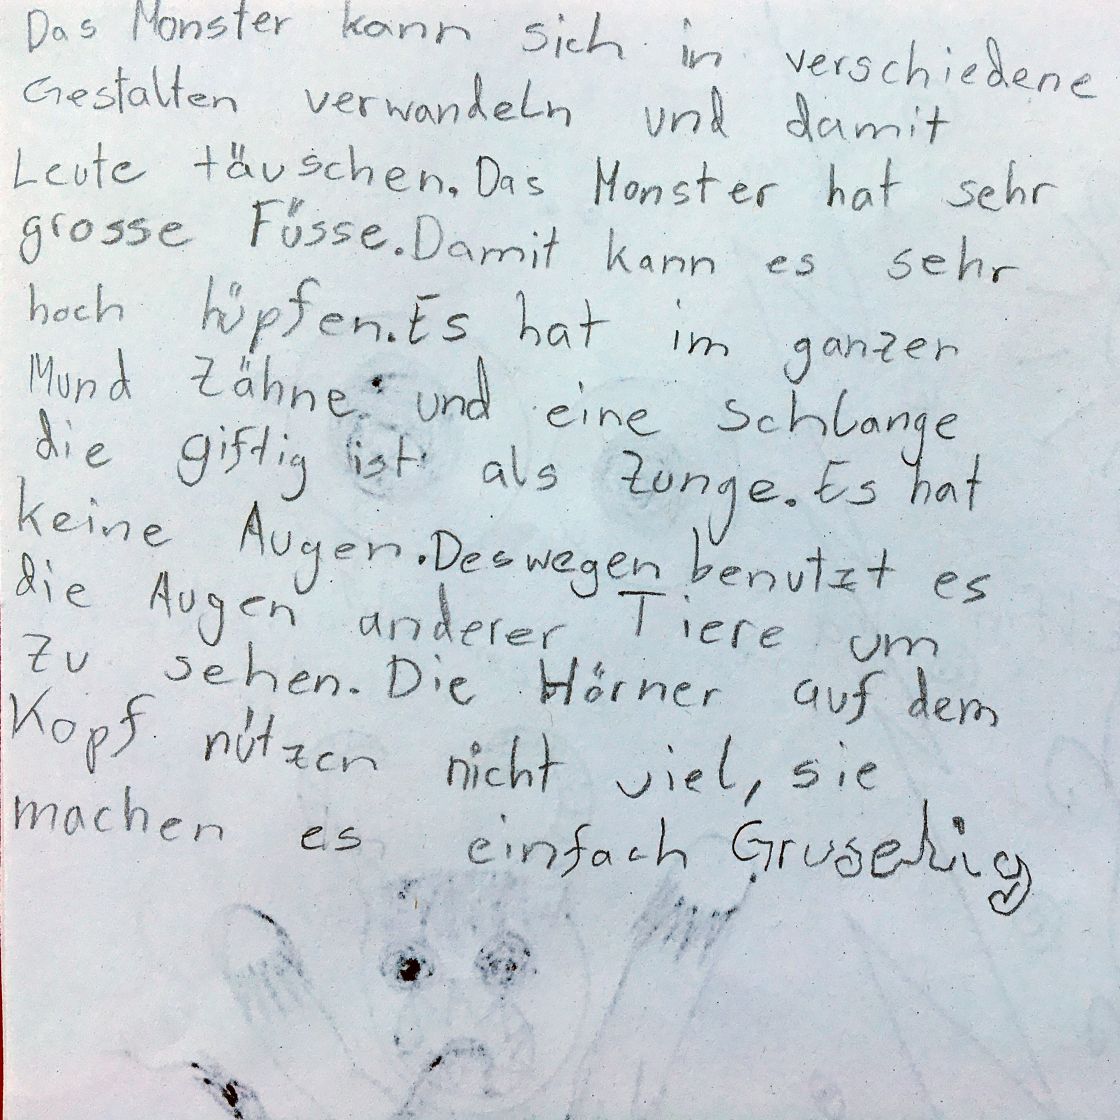 Das Monster kann sich in verschiedene
Gestalten verwandeln und damit
Leute täuschen. Das Monster hat sehr
grosse Füsse. Damit kann es sehr
hoch hüpfen. Es hat im ganzen
Mund Zähne und eine Schlange
die giftig ist als Zunge. Es hat
keine Augen. Deswegen benutzt es
die Augen anderer Tiere um
zu sehen. Die Hörner auf dem
Kopf nützen nicht viel, sie
machen es einfach Gruselig